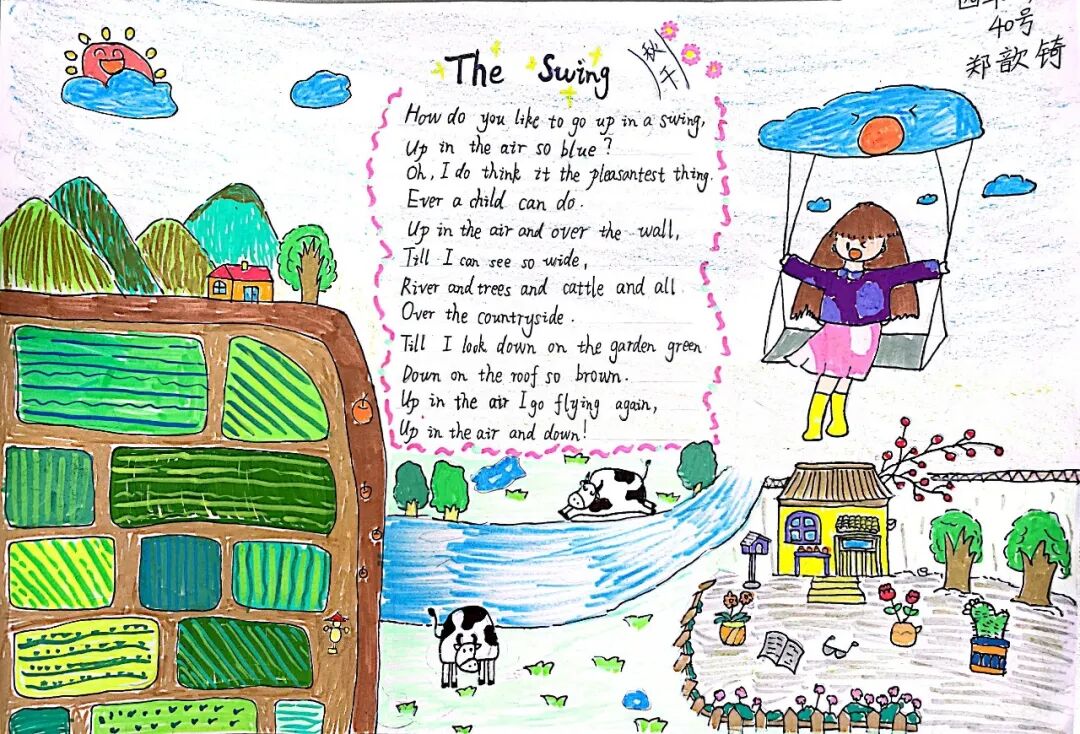 The Swing
秋千
40号
郑歆锜
How do you like to go up in a swing,
Up in the air so blue?
Oh, I do think it the pleasantest thing.
Ever a child can do.
Up in the air and over the wall,
Till I can see so wide,
River and trees and cattle and all
Over the countryside.
Till I look down on the garden green
Down on the roof so brown.
Up in the air I go flying again,
Up in the air and down!